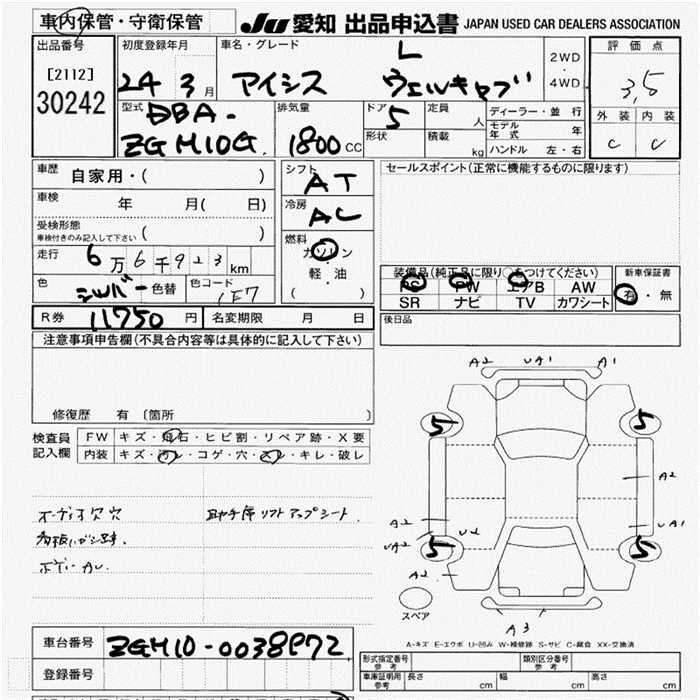 車内保管・守衛保管 JU 愛知 出品申込書 JAPAN USED CAR DEALERS ASSOCIATION
出品番号 初度登録年月 車名・グレード L 2WD・4WD 評価点
[2112] 24 3月 アイシス ウェルキャブ 3,5
30242 外装 内装
型式 DBA- 排気量 ドア 5 定員 人 ディーラー・並行
モデル年式 年
ZGM10G. 1800CC 形状 積載 kg ハンドル 左・右 C C
車歴 自家用・( ) シフト AT セールスポイント(正常に機能するものに限ります)
車検 年 月( 日) 冷房 AC
受検形態
車検付きのみ記入して下さい ( ) 燃料 ガソリン
走行 6万6千923km 軽・油
( )
色 シルバー 色替 色コード 1F7
装備品(純正品に限り○をつけてください) 新車保証書
PS PW エアB AW 有・無
SR ナビ TV カワシート
R券 11750円 名変期限 月 日 後日品
注意事項申告欄(不具合内容等は具体的に記入して下さい)
修復歴 有〔箇所 〕
検査員記入欄 FW キズ・飛石・ヒビ割・リペア跡・X要
内装 キズ・汚レ・コゲ・穴・スレ・キレ・破レ
A2 UA1 A1
5 5
A2
オーディオ欠穴 助手席リフトアップシート.
看板ハガシ跡.
ボディーAU.
A2 U2 UA1
UA2
5 5
A2
スペア
A3
A-キズ E-エクボ U-凹み W-補修跡 S-サビ C-腐食 XX-交換済
車台番号 ZGM10-0038972
登録番号
形式指定番号 参考 類別区分番号 参考
車庫証明用 参考 長さ cm 幅 cm 高さ cm